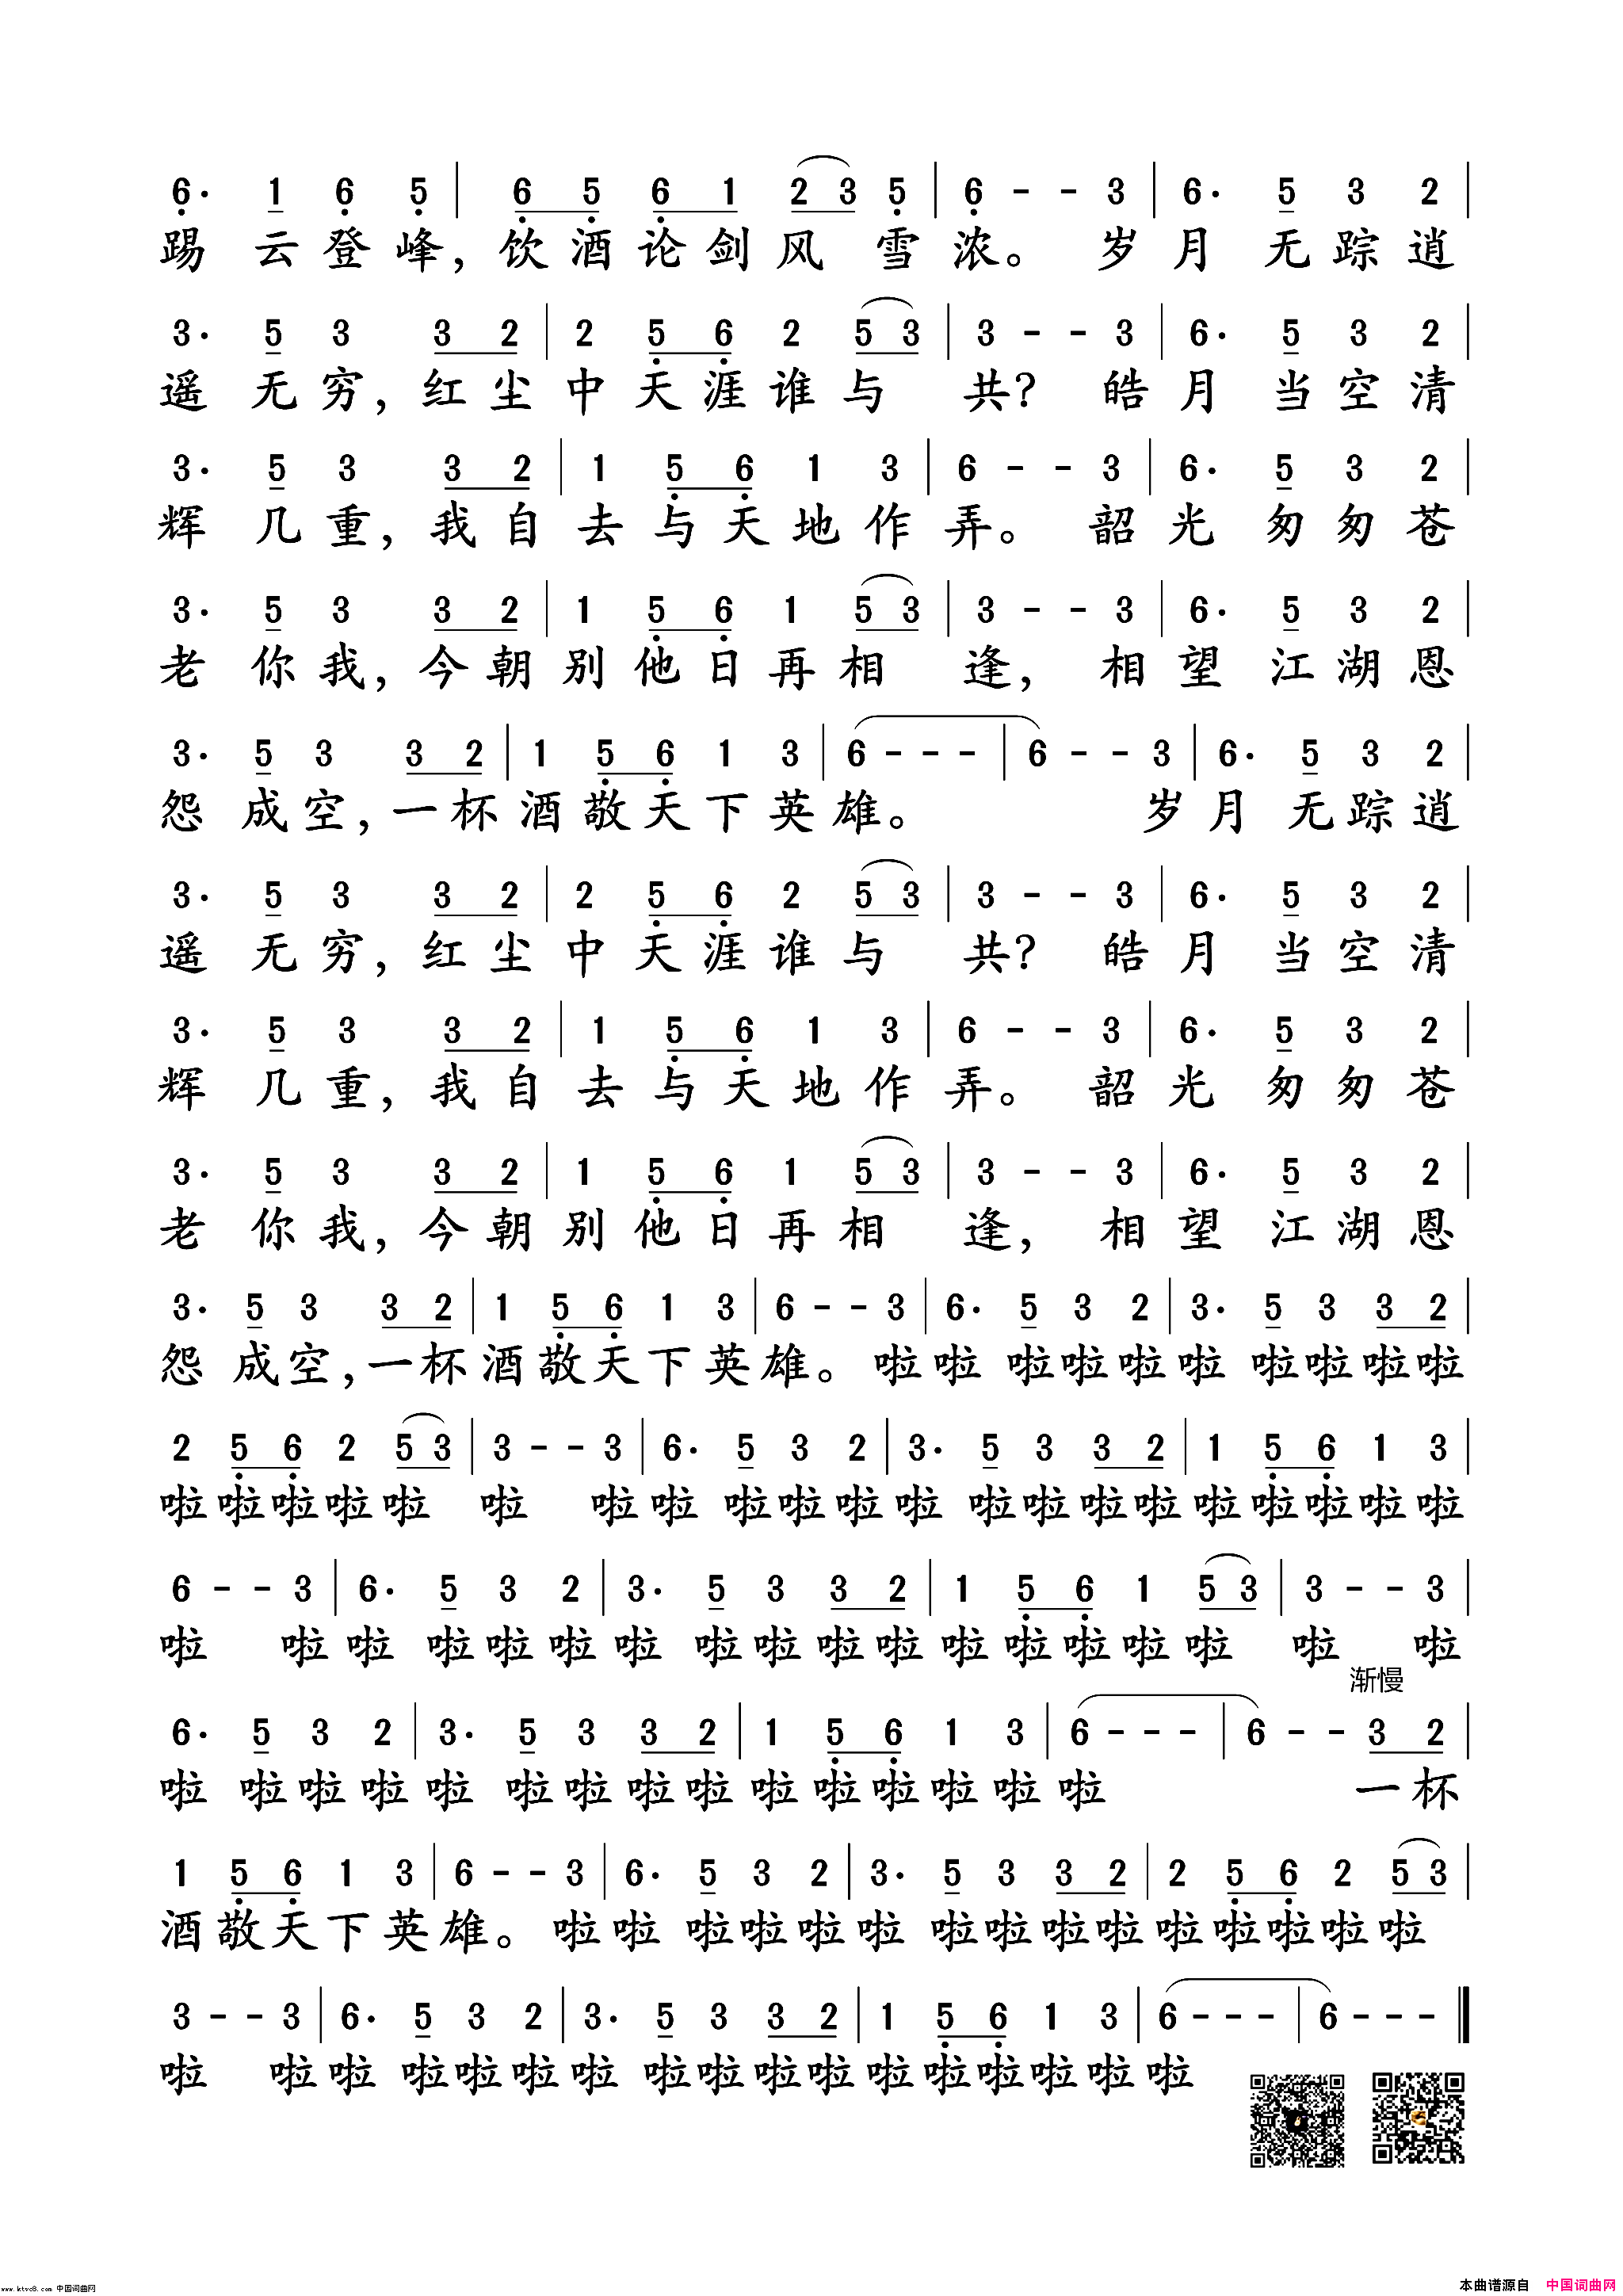 6. 1 6 5 | 6 5 6 1 2 3 5 | 6 - - 3 | 6. 5 3 2 |
踢云登峰，饮酒论剑风雪浓。岁月无踪逍
3. 5 3 3 2 | 2 5 6 2 5 3 | 3 - - 3 | 6. 5 3 2 |
遥无穷，红尘中天涯谁与共？皓月当空清
3. 5 3 3 2 | 1 5 6 1 3 | 6 - - 3 | 6. 5 3 2 |
辉几重，我自去与天地作弄。韶光匆匆苍
3. 5 3 3 2 | 1 5 6 1 5 3 | 3 - - 3 | 6. 5 3 2 |
老你我，今朝别他日再相逢，相望江湖恩
3. 5 3 3 2 | 1 5 6 1 3 | 6 - - - | 6 - - 3 | 6. 5 3 2 |
怨成空，一杯酒敬天下英雄。岁月无踪逍
3. 5 3 3 2 | 2 5 6 2 5 3 | 3 - - 3 | 6. 5 3 2 |
遥无穷，红尘中天涯谁与共？皓月当空清
3. 5 3 3 2 | 1 5 6 1 3 | 6 - - 3 | 6. 5 3 2 |
辉几重，我自去与天地作弄。韶光匆匆苍
3. 5 3 3 2 | 1 5 6 1 5 3 | 3 - - 3 | 6. 5 3 2 |
老你我，今朝别他日再相逢，相望江湖恩
3. 5 3 3 2 | 1 5 6 1 3 | 6 - - 3 | 6. 5 3 2 | 3. 5 3 3 2 |
怨成空，一杯酒敬天下英雄。啦啦 啦啦啦啦 啦啦啦啦
2 5 6 2 5 3 | 3 - - 3 | 6. 5 3 2 | 3. 5 3 3 2 | 1 5 6 1 3 |
啦啦啦啦啦 啦 啦啦 啦啦啦啦 啦啦啦啦啦啦啦啦啦
6 - - 3 | 6. 5 3 2 | 3. 5 3 3 2 | 1 5 6 1 5 3 | 3 - - 3 |
啦 啦啦 啦啦啦啦 啦啦啦啦啦啦啦啦啦 啦 啦
渐慢
6. 5 3 2 | 3. 5 3 3 2 | 1 5 6 1 3 | 6 - - - | 6 - - 3 2 |
啦 啦啦啦啦 啦啦啦啦啦啦啦啦啦啦 一杯
1 5 6 1 3 | 6 - - 3 | 6. 5 3 2 | 3. 5 3 3 2 | 2 5 6 2 5 3 |
酒敬天下英雄。啦啦 啦啦啦啦 啦啦啦啦啦啦啦啦啦
3 - - 3 | 6. 5 3 2 | 3. 5 3 3 2 | 1 5 6 1 3 | 6 - - - | 6 - - - ‖
啦 啦啦 啦啦啦啦 啦啦啦啦啦啦啦啦啦啦
www.ktvc8.com 中国词曲网
本曲谱源自 中国词曲网